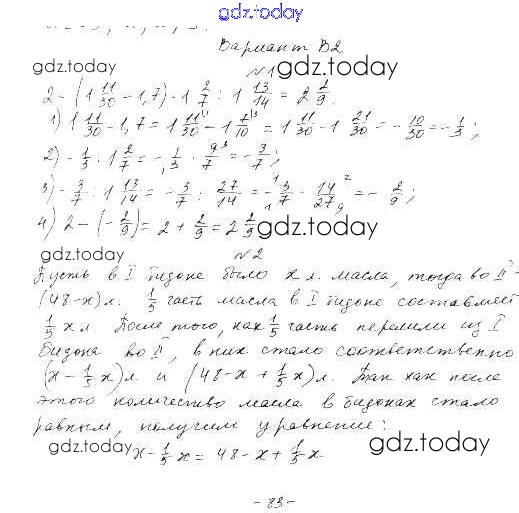 gdz.today
Вариант В2
gdz.today №1 gdz.today
2 - (1 11/30 - 1,7) · 1 2/7 : 1 13/14 = 2 2/9.
1) 1 11/30 - 1,7 = 1 11/30 - 1 7/10 = 1 11/30 - 1 21/30 = - 10/30 = - 1/3;
2) - 1/3 · 1 2/7 = - 1/3 · 9/7 = - 3/7;
3) - 3/7 : 1 13/14 = - 3/7 : 27/14 = - 3/7 · 14/27 = - 2/9;
4) 2 - (- 2/9) = 2 + 2/9 = 2 2/9 gdz.today
gdz.today №2
Пусть в I бидоне было x л. масла, тогда во II -
(48-x) л. 1/5 часть масла в I бидоне составляет
1/5 x л. После того, как 1/5 часть перелили из I
бидона во II, в них стало соответственно
(x - 1/5 x) л и (48 - x + 1/5 x) л. Так как после
этого количество масла в бидонах стало
равным, получим уравнение:
gdz.today x - 1/5 x = 48 - x + 1/5 x gdz.today
- 83 -